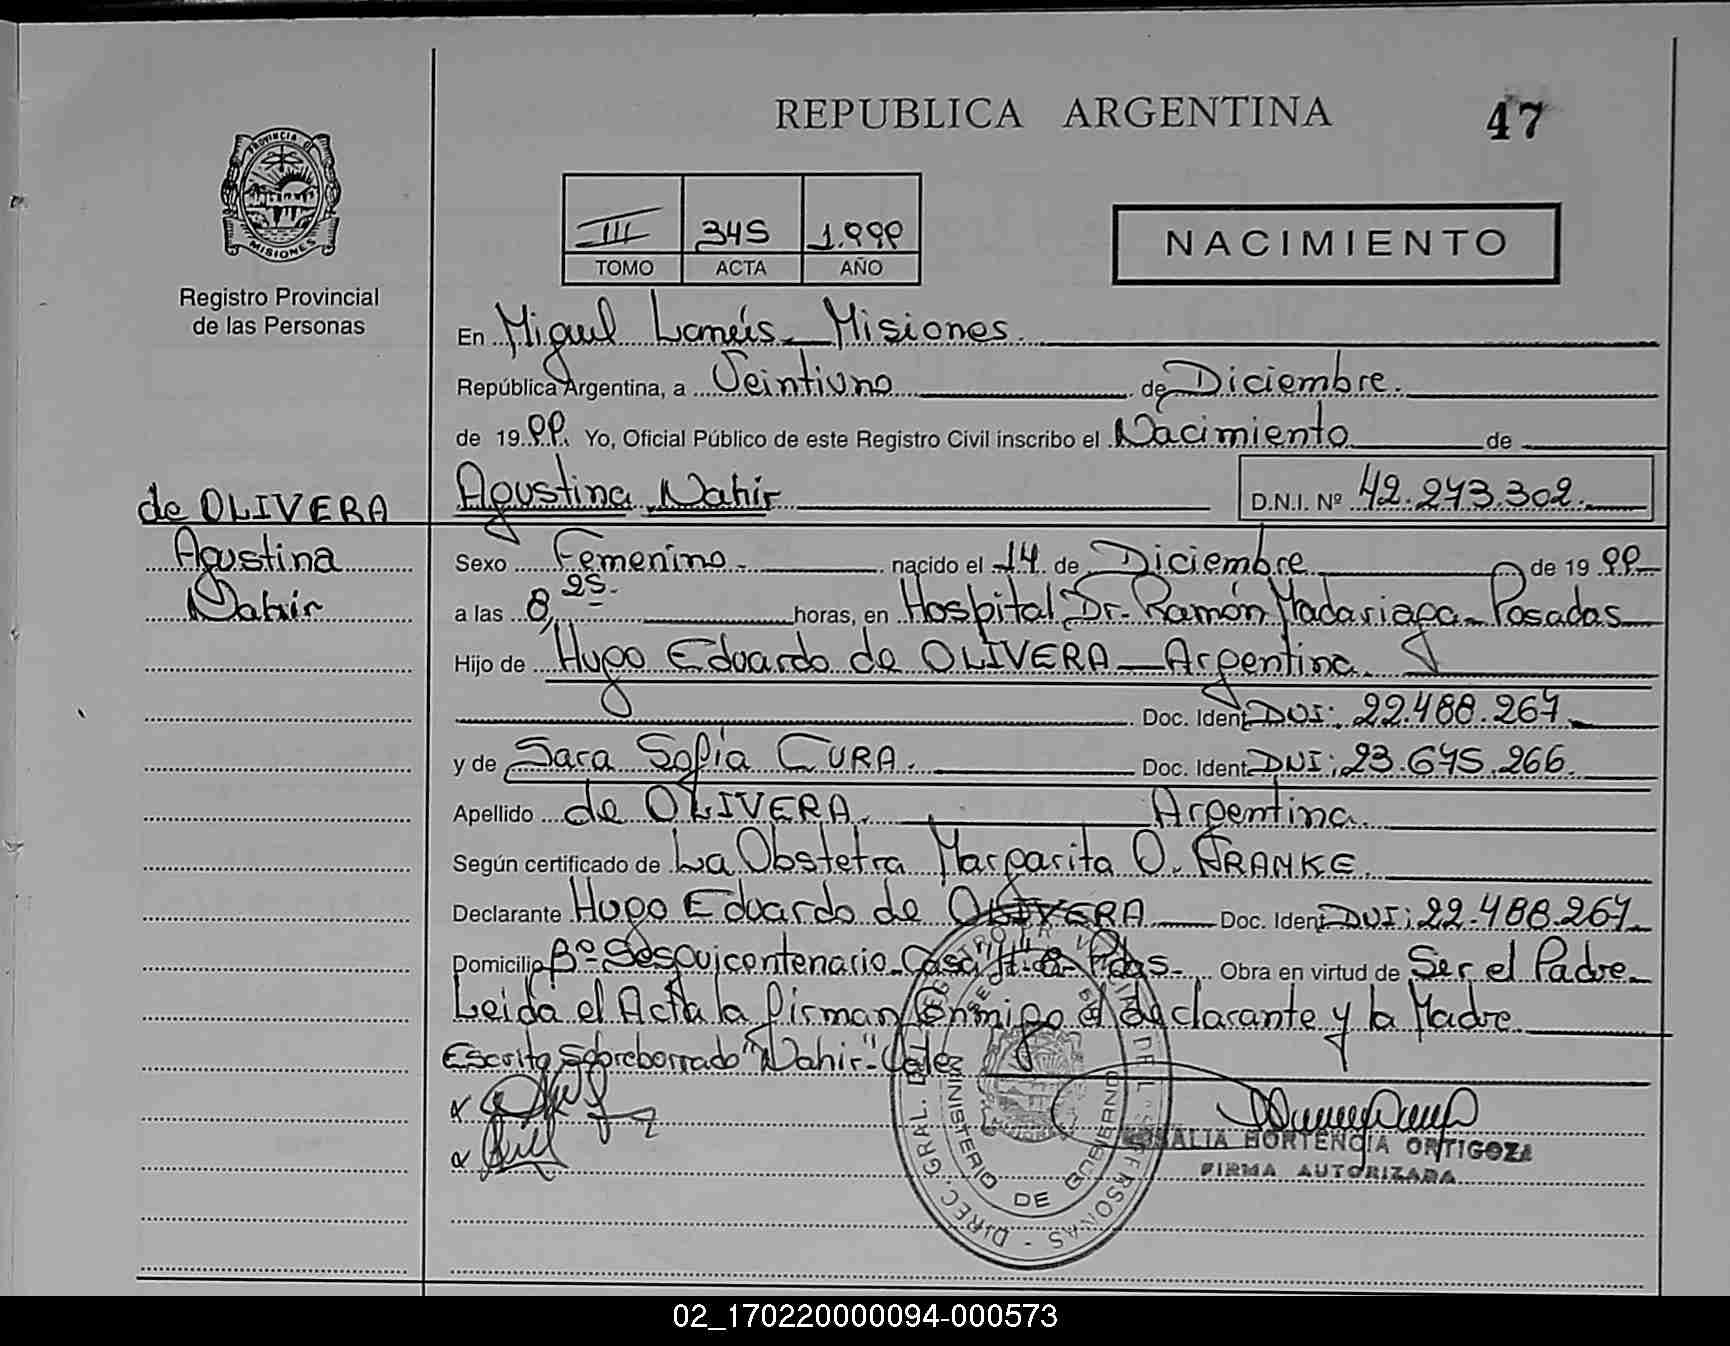 REPUBLICA ARGENTINA
47
PROVINCIA DE
MISIONES
Registro Provincial
de las Personas
III 345 1.999
TOMO ACTA AÑO
NACIMIENTO
En Miguel Lanús - Misiones.
República Argentina, a Veintiuno de Diciembre.
de 19 99. Yo, Oficial Público de este Registro Civil inscribo el Nacimiento de
de OLIVERA
Agustina
Nahir
Agustina Nahir
D.N.I. Nº 42.273.302.
Sexo Femenino - nacido el 14 de Diciembre de 19 99
a las 8, 25 horas, en Hospital Dr. Ramón Madariaga - Posadas
Hijo de Hugo Eduardo de OLIVERA - Argentina.
Doc. Ident DNI: 22.488.267
y de Sara Sofía CURA. Doc. Ident DNI: 23.675.266.
Apellido de OLIVERA. Argentina.
Según certificado de La Obstetra Margarita O. FRANKE.
Declarante Hugo Eduardo de OLIVERA Doc. Ident DNI: 22.488.267
Domicilio Bº Sesquicentenario - Casa Pdas - Obra en virtud de Ser el Padre
Leida el Acta la firman conmigo el declarante y la Madre
Escrito Sobreborrado "Nahir" - Vale
ALIA HORTENCIA ORTIGOZA
FIRMA AUTORIZADA
MINISTERIO DE GOBIERNO
02_170220000094-000573